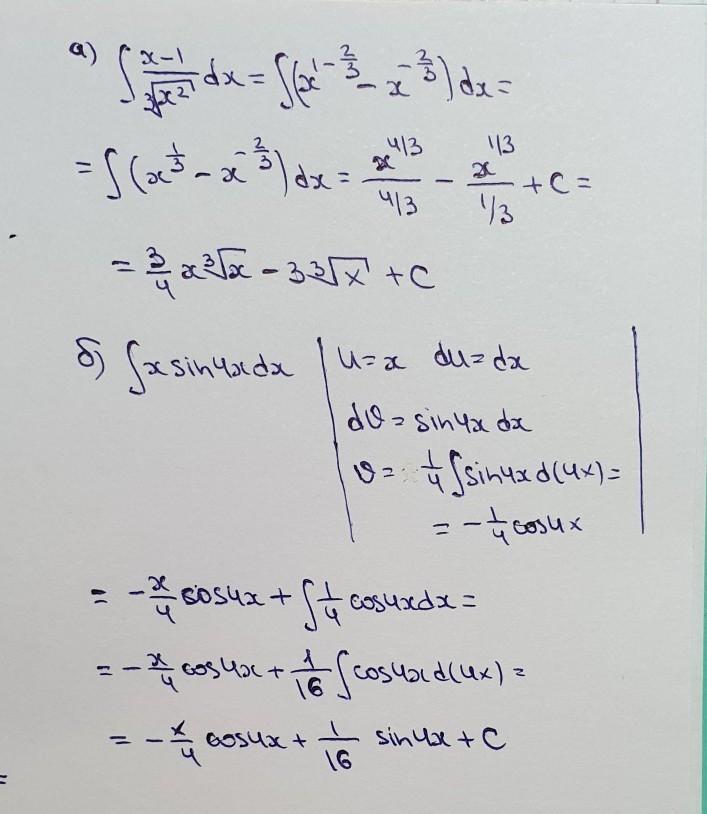 а) ∫ (x-1)/∛(x²) dx = ∫(x^(1-2/3) - x^(-2/3)) dx =
= ∫(x^(1/3) - x^(-2/3)) dx = x^(4/3)/(4/3) - x^(1/3)/(1/3) + C =
= 3/4 x ∛x - 3 ∛x + C
б) ∫ x sin4x dx | u = x du = dx |
dv = sin4x dx
v = 1/4 ∫ sin4x d(4x) =
= -1/4 cos4x
= -x/4 cos4x + ∫ 1/4 cos4x dx =
= -x/4 cos4x + 1/16 ∫ cos4x d(4x) =
= -x/4 cos4x + 1/16 sin4x + C
=